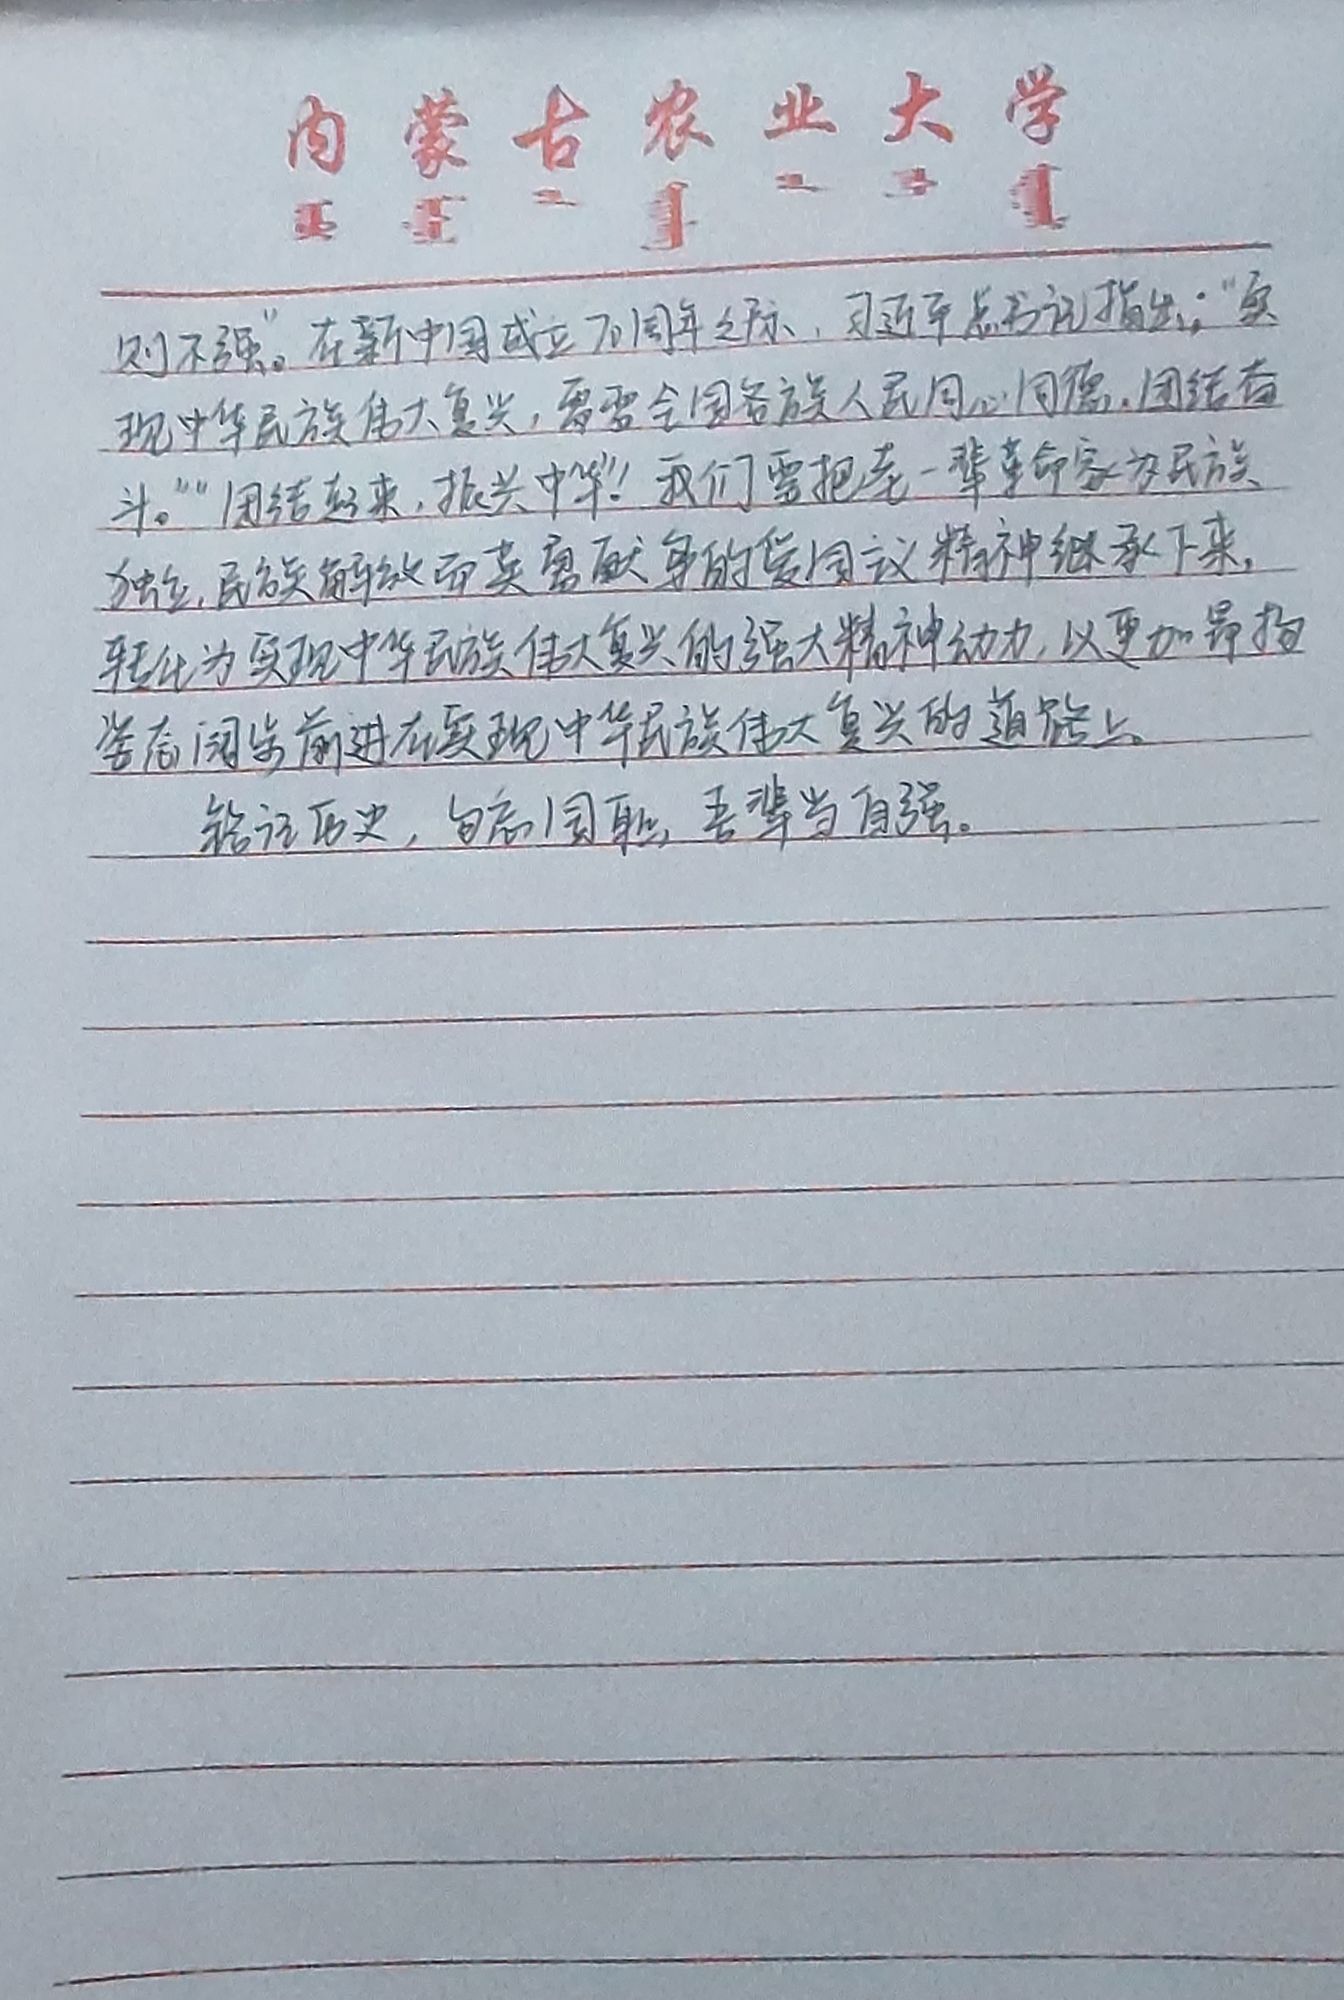 内蒙古农业大学
则不强"。在新中国成立70周年之际、习近平总书记指出:"实
现中华民族伟大复兴,需要全国各族人民同心同德、团结奋
斗。""团结起来,振兴中华"!我们要把老一辈革命家为民族
独立、民族解放而英勇献身的爱国主义精神继承下来,
转化为实现中华民族伟大复兴的强大精神动力,以更加昂扬
姿态阔步前进在实现中华民族伟大复兴的道路上。
铭记历史,勿忘国耻,吾辈当自强。